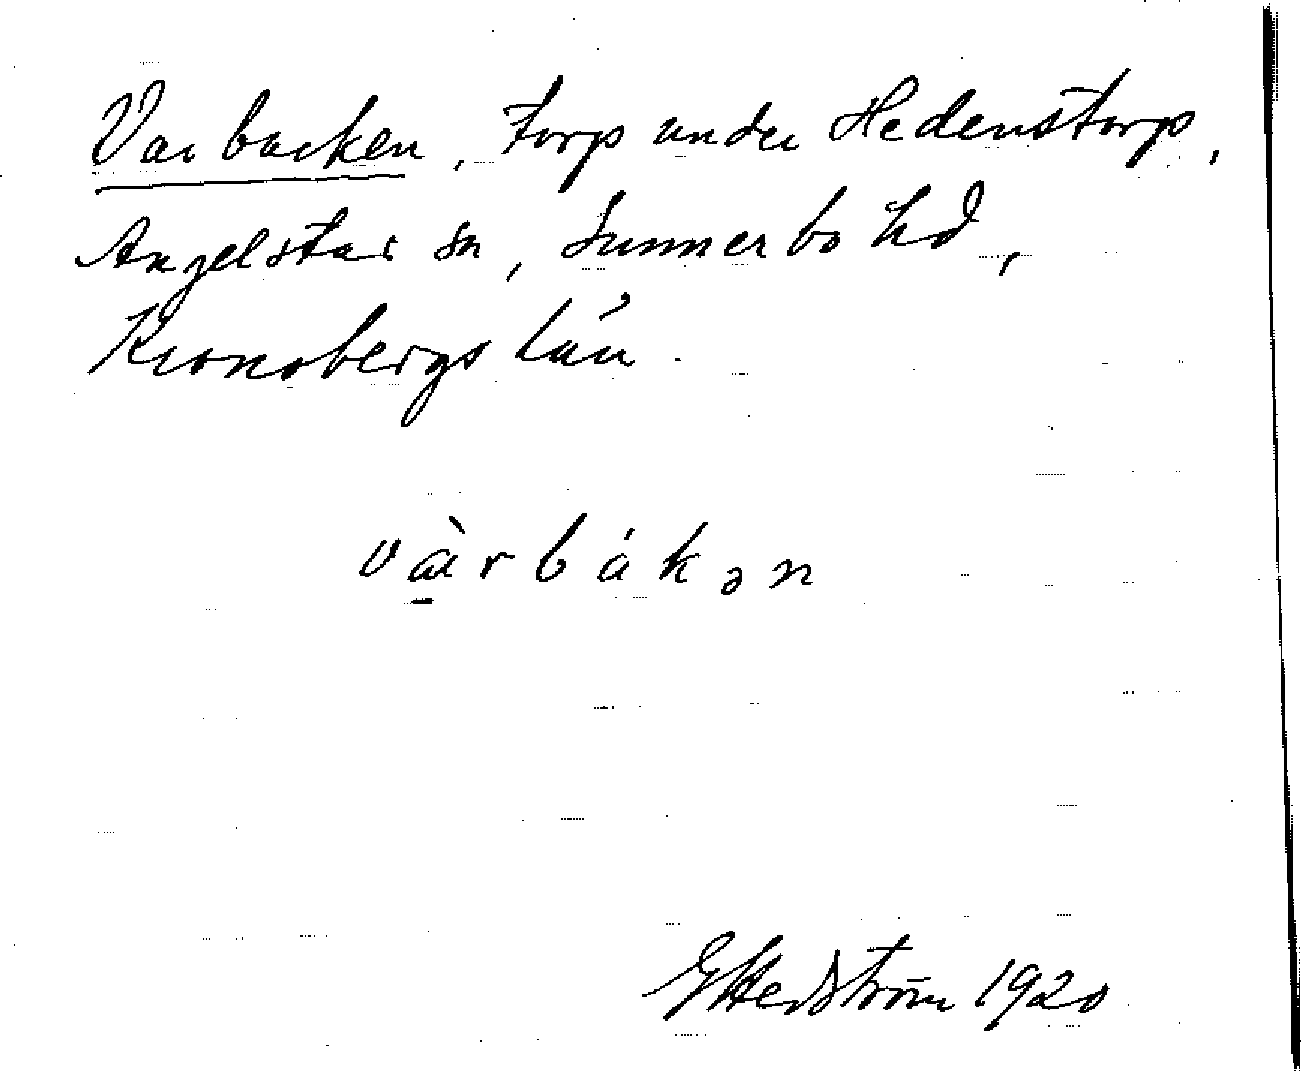 Varbacken, torp under Hedenstorp,
Angelstas sn, Sunnerbo hd,
Kronobergs län.
vàrbákən
G Hedström 1920